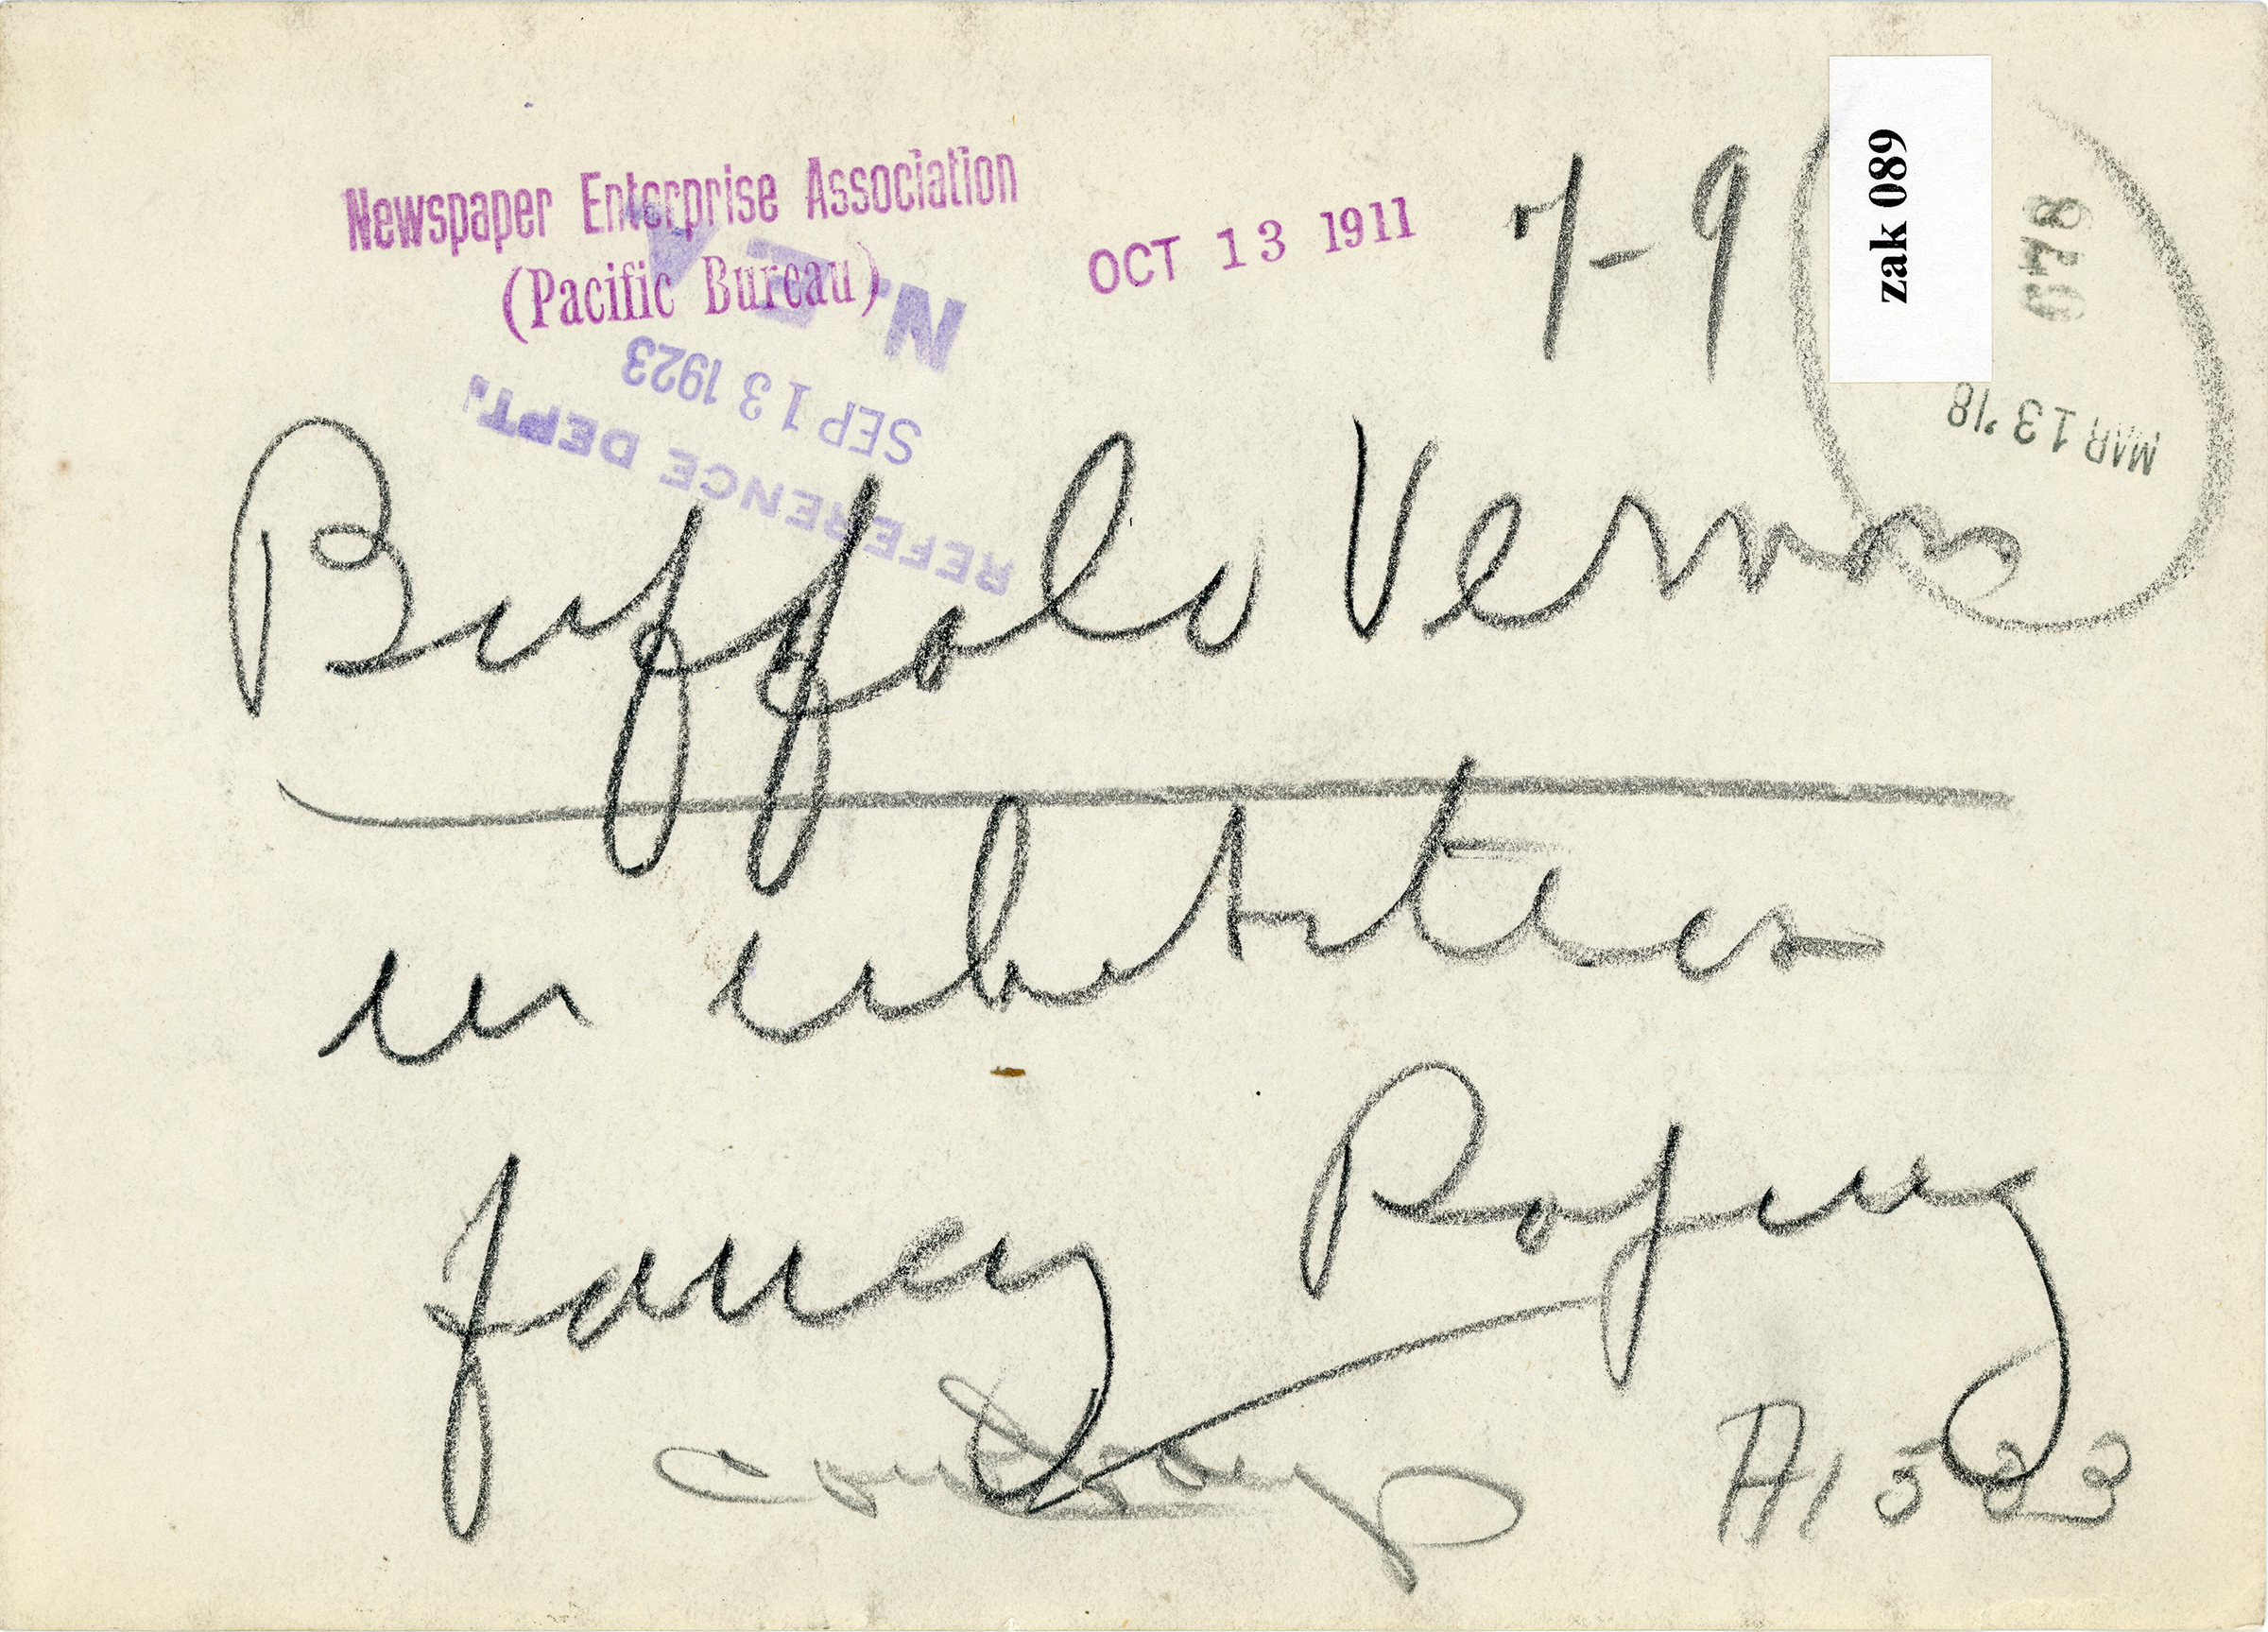 Newspaper Enterprise Association
(Pacific Bureau)
OCT 13 1911
7-9
zak 089
678
MAR 13 '18
N.E.A.
SEP 13 1923
REFERENCE DEPT.
Buffalo Vernon
in
Fancy Roping
cowboys
A1523